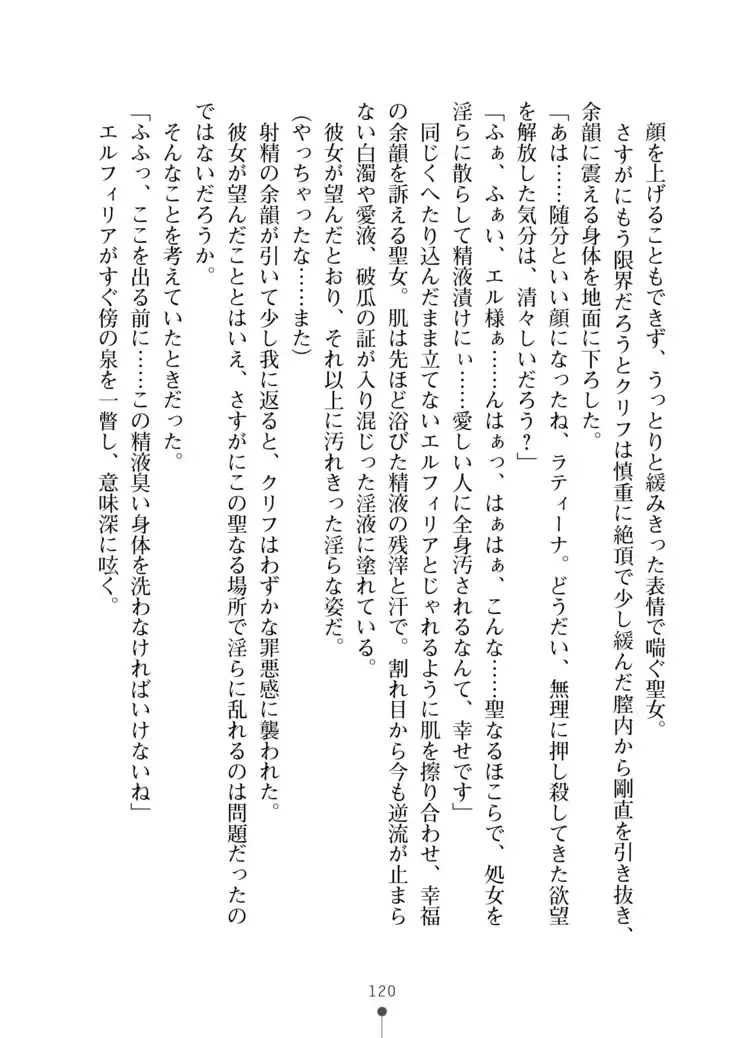 顔を上げることもできず、うっとりと緩みきった表情で喘ぐ聖女。
さすがにもう限界だろうとクリフは慎重に絶頂で少し緩んだ膣内から剛直を引き抜き、
余韻に震える身体を地面に下ろした。
「あは……随分といい顔になったね、ラティーナ。どうだい、無理に押し殺してきた欲望
を解放した気分は、清々しいだろう？」
「ふぁ、ふぁい、エル様ぁ……んはぁっ、はぁはぁ、こんな……聖なるほこらで、処女を
淫らに散らして精液漬けにぃ……愛しい人に全身汚されるなんて、幸せです」
同じくへたり込んだまま立てないエルフィリアとじゃれるように肌を擦り合わせ、幸福
の余韻を訴える聖女。肌は先ほど浴びた精液の残滓と汗で。割れ目から今も逆流が止まら
ない白濁や愛液、破瓜の証が入り混じった淫液に塗れている。
彼女が望んだとおり、それ以上に汚れきった淫らな姿だ。
(やっちゃったな……また)
射精の余韻が引いて少し我に返ると、クリフはわずかな罪悪感に襲われた。
彼女が望んだこととはいえ、さすがにこの聖なる場所で淫らに乱れるのは問題だったの
ではないだろうか。
そんなことを考えていたときだった。
「ふふっ、ここを出る前に……この精液臭い身体を洗わなければいけないね」
エルフィリアがすぐ傍の泉を一瞥し、意味深に呟く。
120